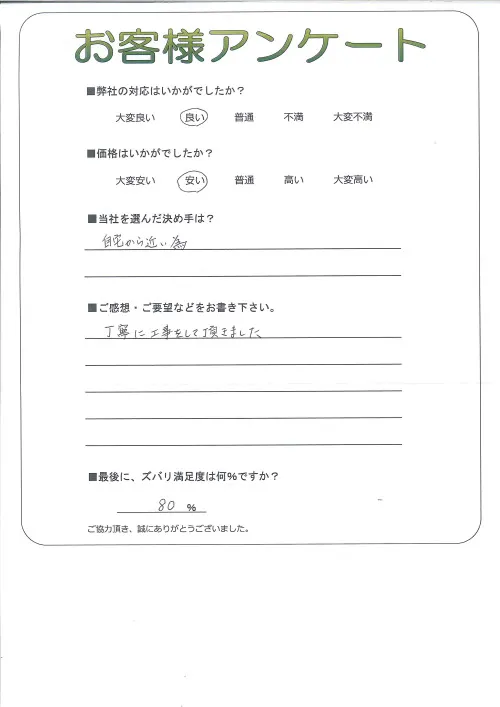 お客様アンケート
■弊社の対応はいかがでしたか？
大変良い 良い 普通 不満 大変不満
■価格はいかがでしたか？
大変安い 安い 普通 高い 大変高い
■当社を選んだ決め手は？
自宅から近い為
■ご感想・ご要望などをお書き下さい。
丁寧に工事をして頂きました
■最後に、ズバリ満足度は何%ですか？
80 %
ご協力頂き、誠にありがとうございました。